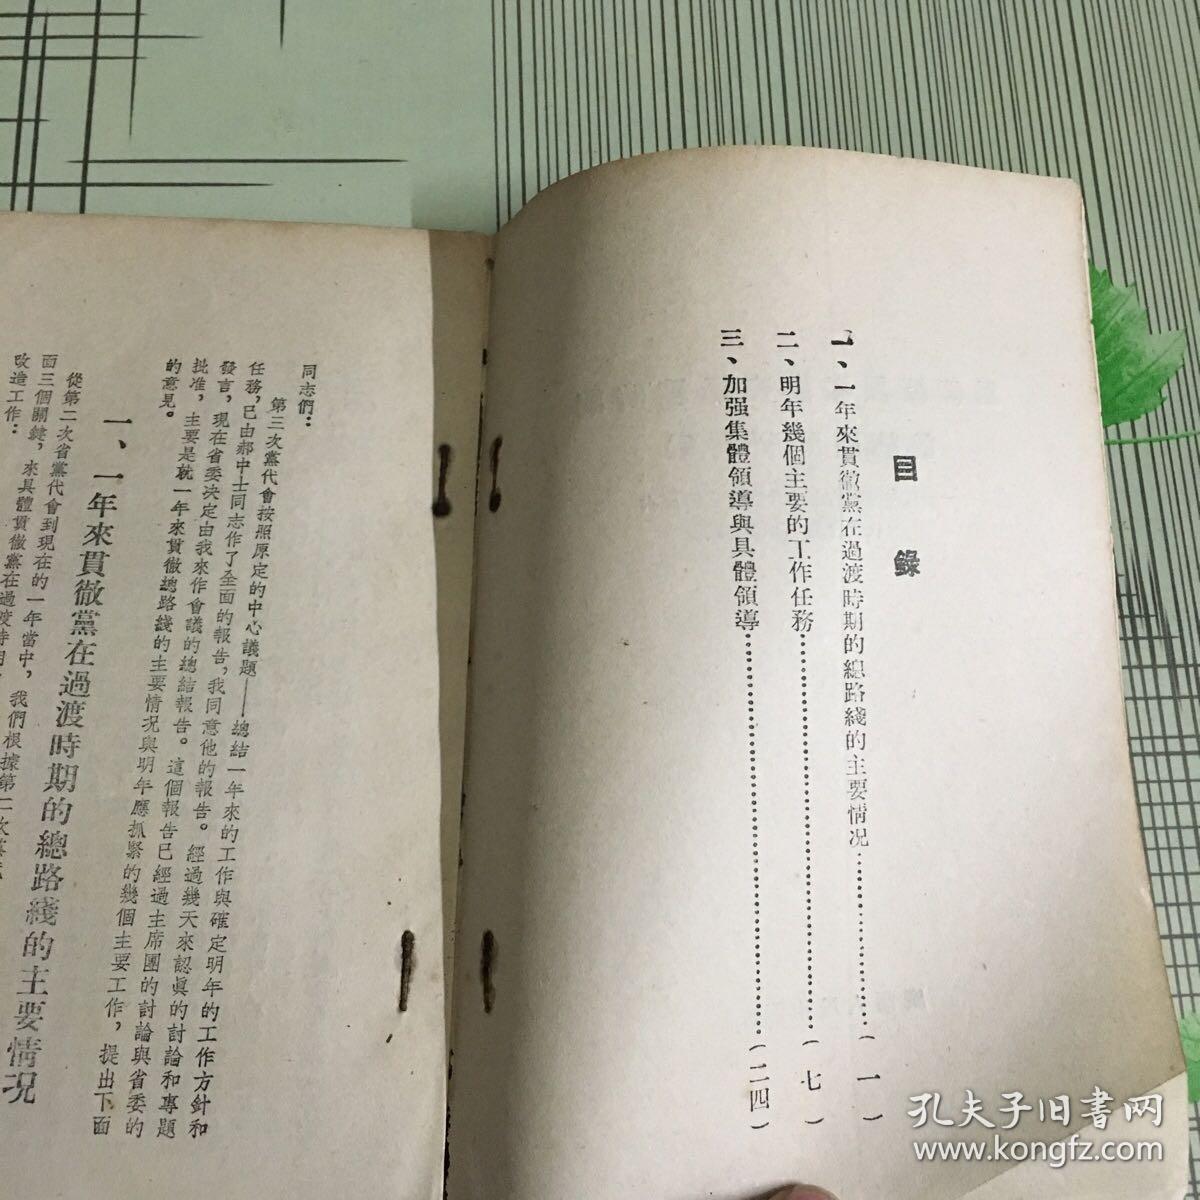 目錄
一、一年來貫徹黨在過渡時期的總路綫的主要情况…………………(一)
二、明年幾個主要的工作任務…………………………………………(七)
三、加强集體領導與具體領導…………………………………………(二四)
同志們：
第三次黨代會按照原定的中心議題——總結一年來的工作與確定明年的工作方針和
任務，已由郝中士同志作了全面的報告，我同意他的報告。經過幾天來認眞的討論和專題
發言，現在省委决定由我來作會議的總結報告。這個報告已經過主席團的討論與省委的
批准，主要是就一年來貫徹總路綫的主要情况與明年應抓緊的幾個主要工作，提出下面
的意見。
一、一年來貫徹黨在過渡時期的總路綫的主要情况
從第二次省黨代會到現在的一年當中，我們根據第二次黨代
面三個關鍵，來具體貫徹黨在過渡時期
改造工作：
孔夫子旧書网
www.kongfz.com